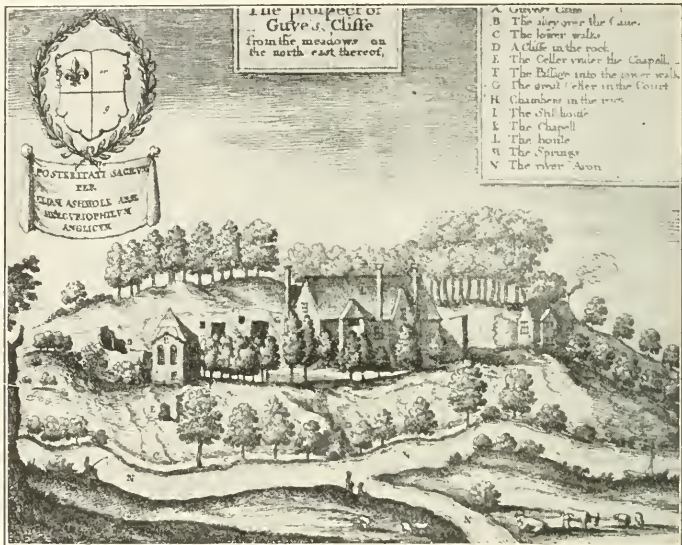 The prospect of
Guyes Cliffe
from the meadows on
the north east thereof,
A Guyes Cave
B The alley over the Cave.
C The lower walks
D A Cliffe in the rock
E The Celler vnder the Chapell.
T The Passage into the lower walk
G The great Celler in the Court
H Chambers in the rock
I The Still house
K The Chapell
L The house
The Springs
N The river Avon
or
g
POSTERITATI SACRVM
PER
ELIAM ASHMOLE ARM
MERCVRIOPHILVM
ANGLICVM
N
N